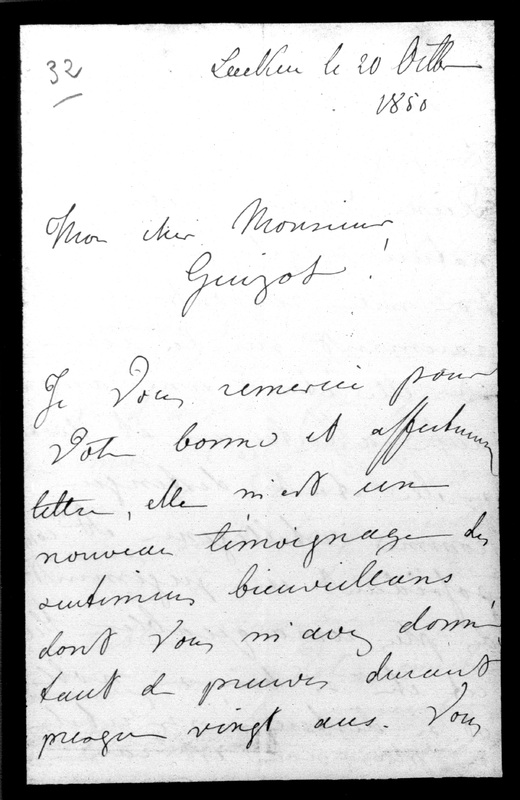 32
Laeken le 20 Octbr
1850
Mon cher Monsieur
Guizot!
Je Vous remercie pour
Votre bonne et affectueuse
lettre, elle m'est un
nouveau témoignage des
sentimens bienveillans
dont Vous m'avez donné
tant de preuves durant
presque vingt ans. Vous